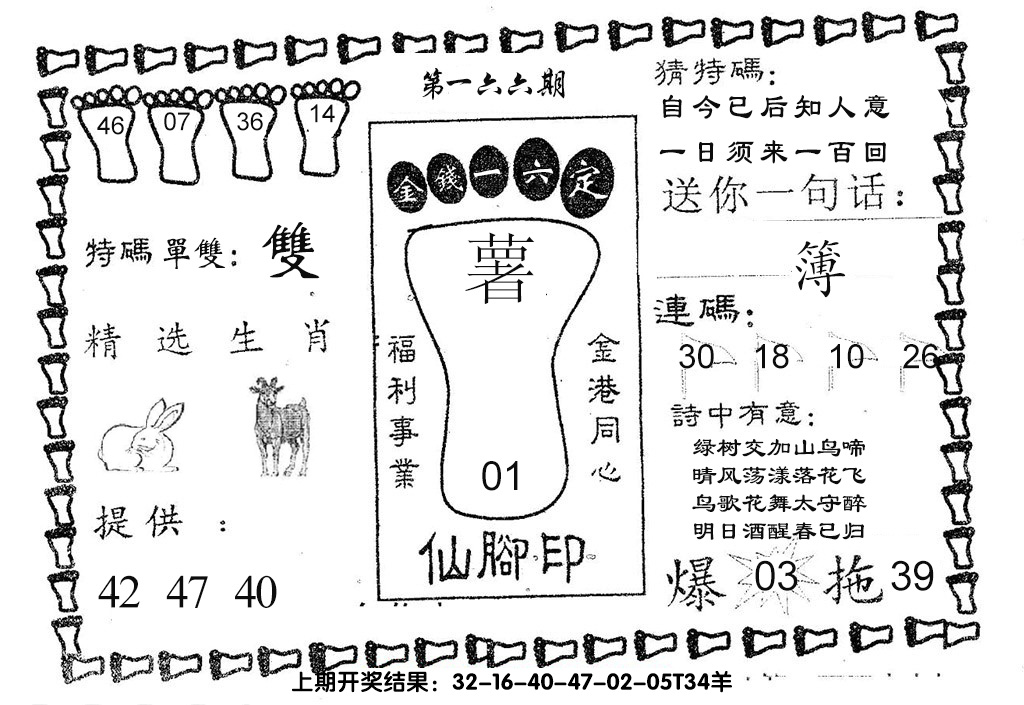 第一六六期
46 07 36 14
特碼單雙：雙
精选生肖
提供：
42 47 40
金錢一六定
薯
福利事業
金港同心
01
仙腳印
猜特碼：
自今已后知人意
一日须来一百回
送你一句话：
簿
連碼：
30 18 10 26
詩中有意：
绿树交加山鸟啼
晴风荡漾落花飞
鸟歌花舞太守醉
明日酒醒春已归
爆 03 拖 39
上期开奖结果：32-16-40-47-02-05T34羊